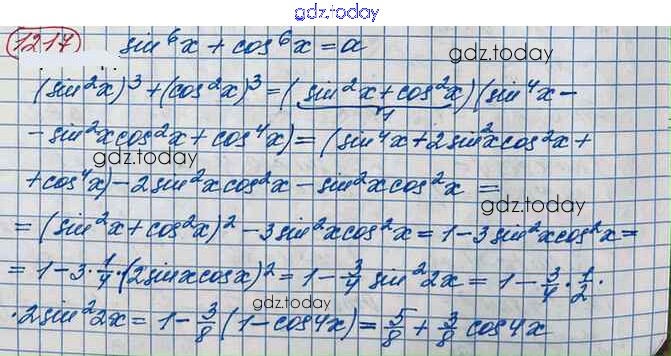 gdz.today
1217 sin⁶x + cos⁶x = a
gdz.today
(sin²x)³ + (cos²x)³ = (sin²x + cos²x)(sin⁴x −
1
− sin²x cos²x + cos⁴x) = (sin⁴x + 2sin²x cos²x +
gdz.today
+ cos⁴x) − 2sin²x cos²x − sin²x cos²x =
gdz.today
= (sin²x + cos²x)² − 3sin²x cos²x = 1 − 3sin²x cos²x =
= 1 − 3 · 1/4 · (2sinx cosx)² = 1 − 3/4 sin²2x = 1 − 3/4 · 1/2 ·
gdz.today
· 2sin²2x = 1 − 3/8 (1 − cos4x) = 5/8 + 3/8 cos4x